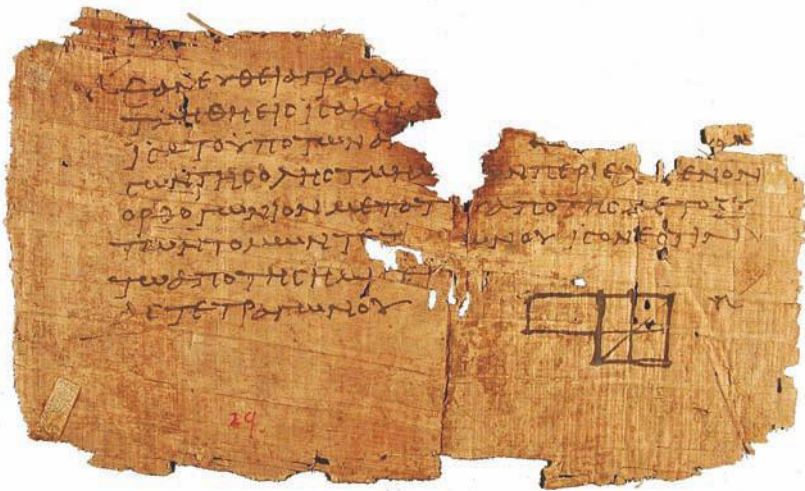 ΕΑΝ ΕΥΘΕΙΑ ΓΡΑΜ
ΤΜΗΘΗ ΕΙϹ ΙϹΑ ΚΑΙ Α
ΙϹΑ ΤΟ ΥΠΟ ΤΩΝ Α
ΤΩΝ ΤΗϹ ΟΛΗϹ ΤΜΗΜΑ ΩΝ ΠΕΡΙΕΧ ΜΕΝΟΝ
ΟΡΘΟΓΩΝΙΟΝ ΜΕΤΑ Τ Υ ΑΠΟ ΤΗϹ ΜΕΤΟΞΥ
ΤΩΝ ΤΟΜΩΝ ΤΕΤ ΩΝΟΥ ΙϹΟΝ ΕϹΤΙΝ
ΤΩ ΑΠΟ ΤΗϹ ΗΜΙϹΕΙ
ΑϹ ΤΕΤΡΑΓΩΝΟΥ
29